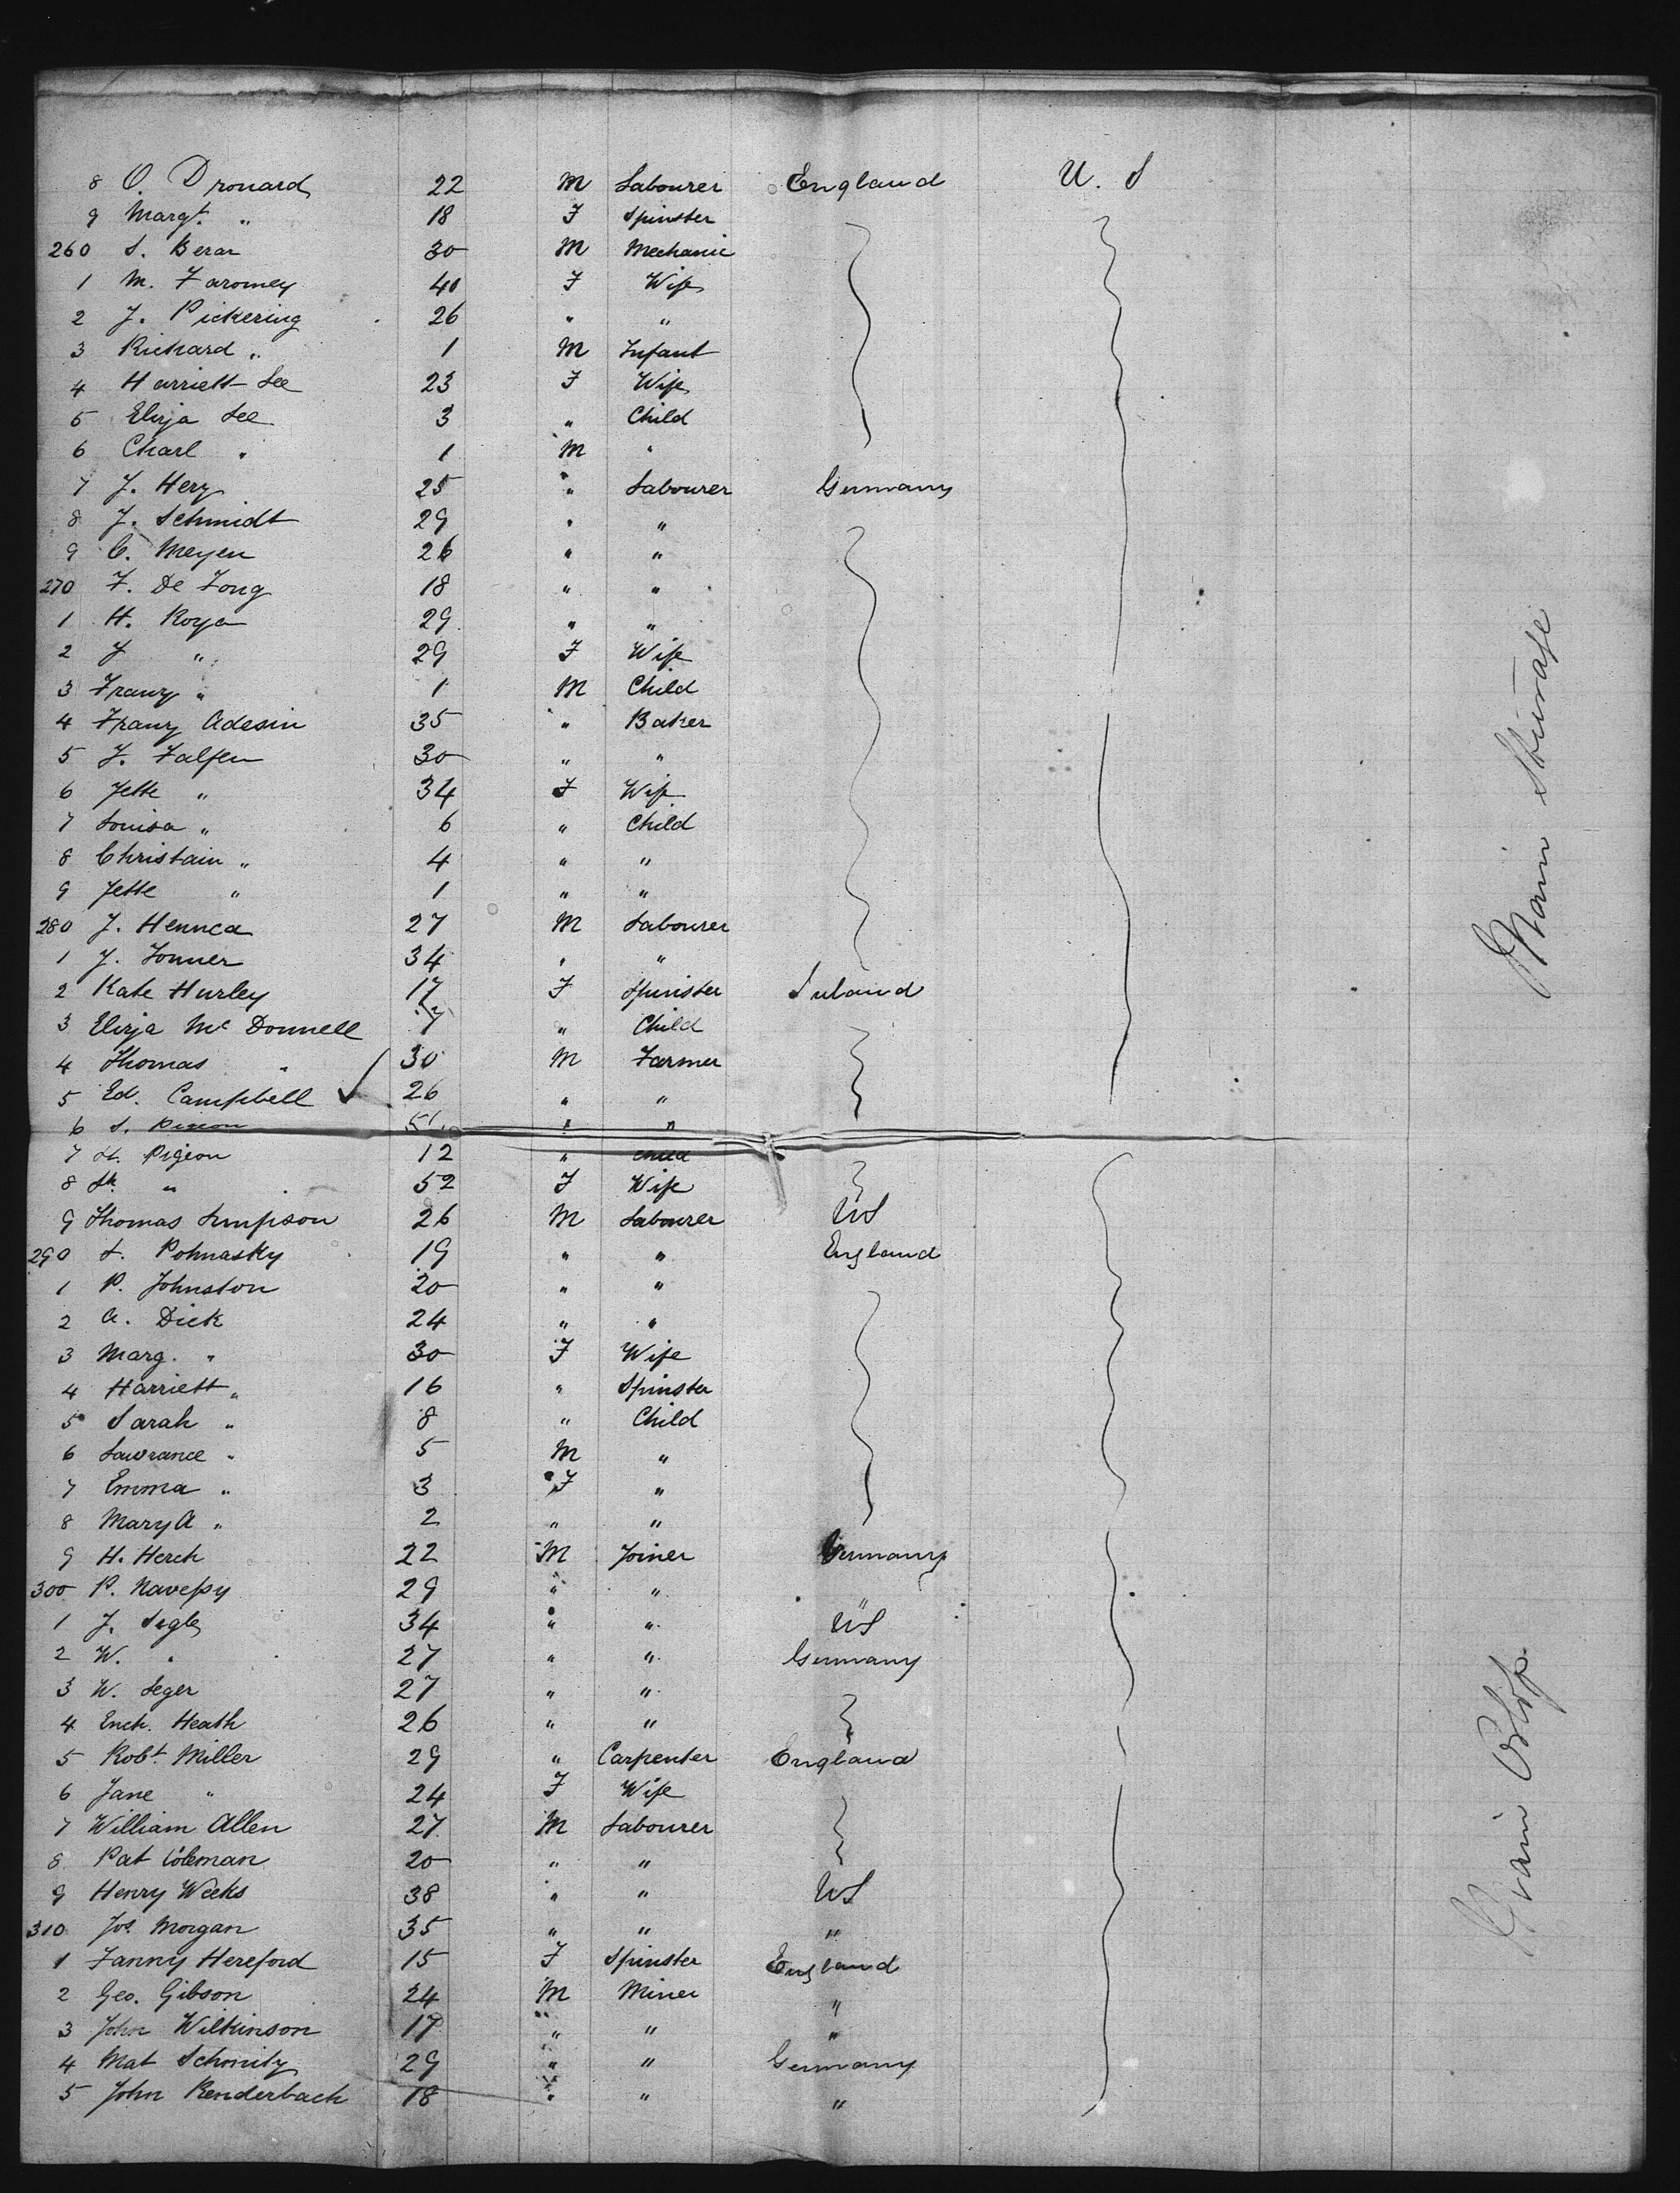 8 O. Drouard 22 M Labourer England U. S
9 Margt. " 18 F Spinster
260 S. Berar 30 M Mechanic
1 M. Faromey 40 F Wife
2 J. Pickering 26 " "
3 Richard " 1 M Infant
4 Harriett Lee 23 F Wife
5 Eliza Lee 3 " Child
6 Charl " 1 M "
7 J. Herz 25 " Labourer Germany
8 J. Schmidt 29 " "
9 C. Meyen 26 " "
270 F. De Jong 18 " "
1 H. Roya 29 " "
2 J " 29 F Wife
3 Franz " 1 M Child
4 Franz Adesin 35 " Baker
5 J. Falfen 30 " "
6 Jette " 34 F Wife
7 Louisa " 6 " Child
8 Christain " 4 " "
9 Jette " 1 " "
280 J. Hennca 27 M Labourer
1 J. Tonner 34 " "
2 Kate Hurley 17 F Spinster Ireland
3 Eliza Mc Donnell 7 " Child
4 Thomas " 30 M Farmer
5 Ed. Campbell ✓ 26 " "
6 " "
7 St. Pigeon 12 " Child
8 " 52 F Wife
9 Thomas Simpson 26 M Labourer US
290 S. Pohnasky 19 " " England
1 P. Johnston 20 " "
2 A. Dick 24 " "
3 Marg. " 30 F Wife
4 Harriett " 16 " Spinster
5 Sarah " 8 " Child
6 Lawrance " 5 M "
7 Emma " 3 F "
8 Mary A " 2 " "
9 H. Herch 22 M Joiner Germany
300 P. Navessy 29 " " "
1 J. Segle 34 " " US
2 W. " 27 " " Germany
3 W. Seger 27 " "
4 Ench. Heath 26 " "
5 Robt Miller 29 " Carpenter England
6 Jane " 24 F Wife
7 William Allen 27 M Labourer
8 Pat Coleman 20 " "
9 Henry Weeks 38 " " US
310 Jos. Morgan 35 " " "
1 Fanny Hereford 15 F Spinster England
2 Geo. Gibson 24 M Miner "
3 John Wilkinson 17 " " "
4 Mat Schmitz 29 " " Germany
5 John Renderbach 18 " " "
Main Steerage